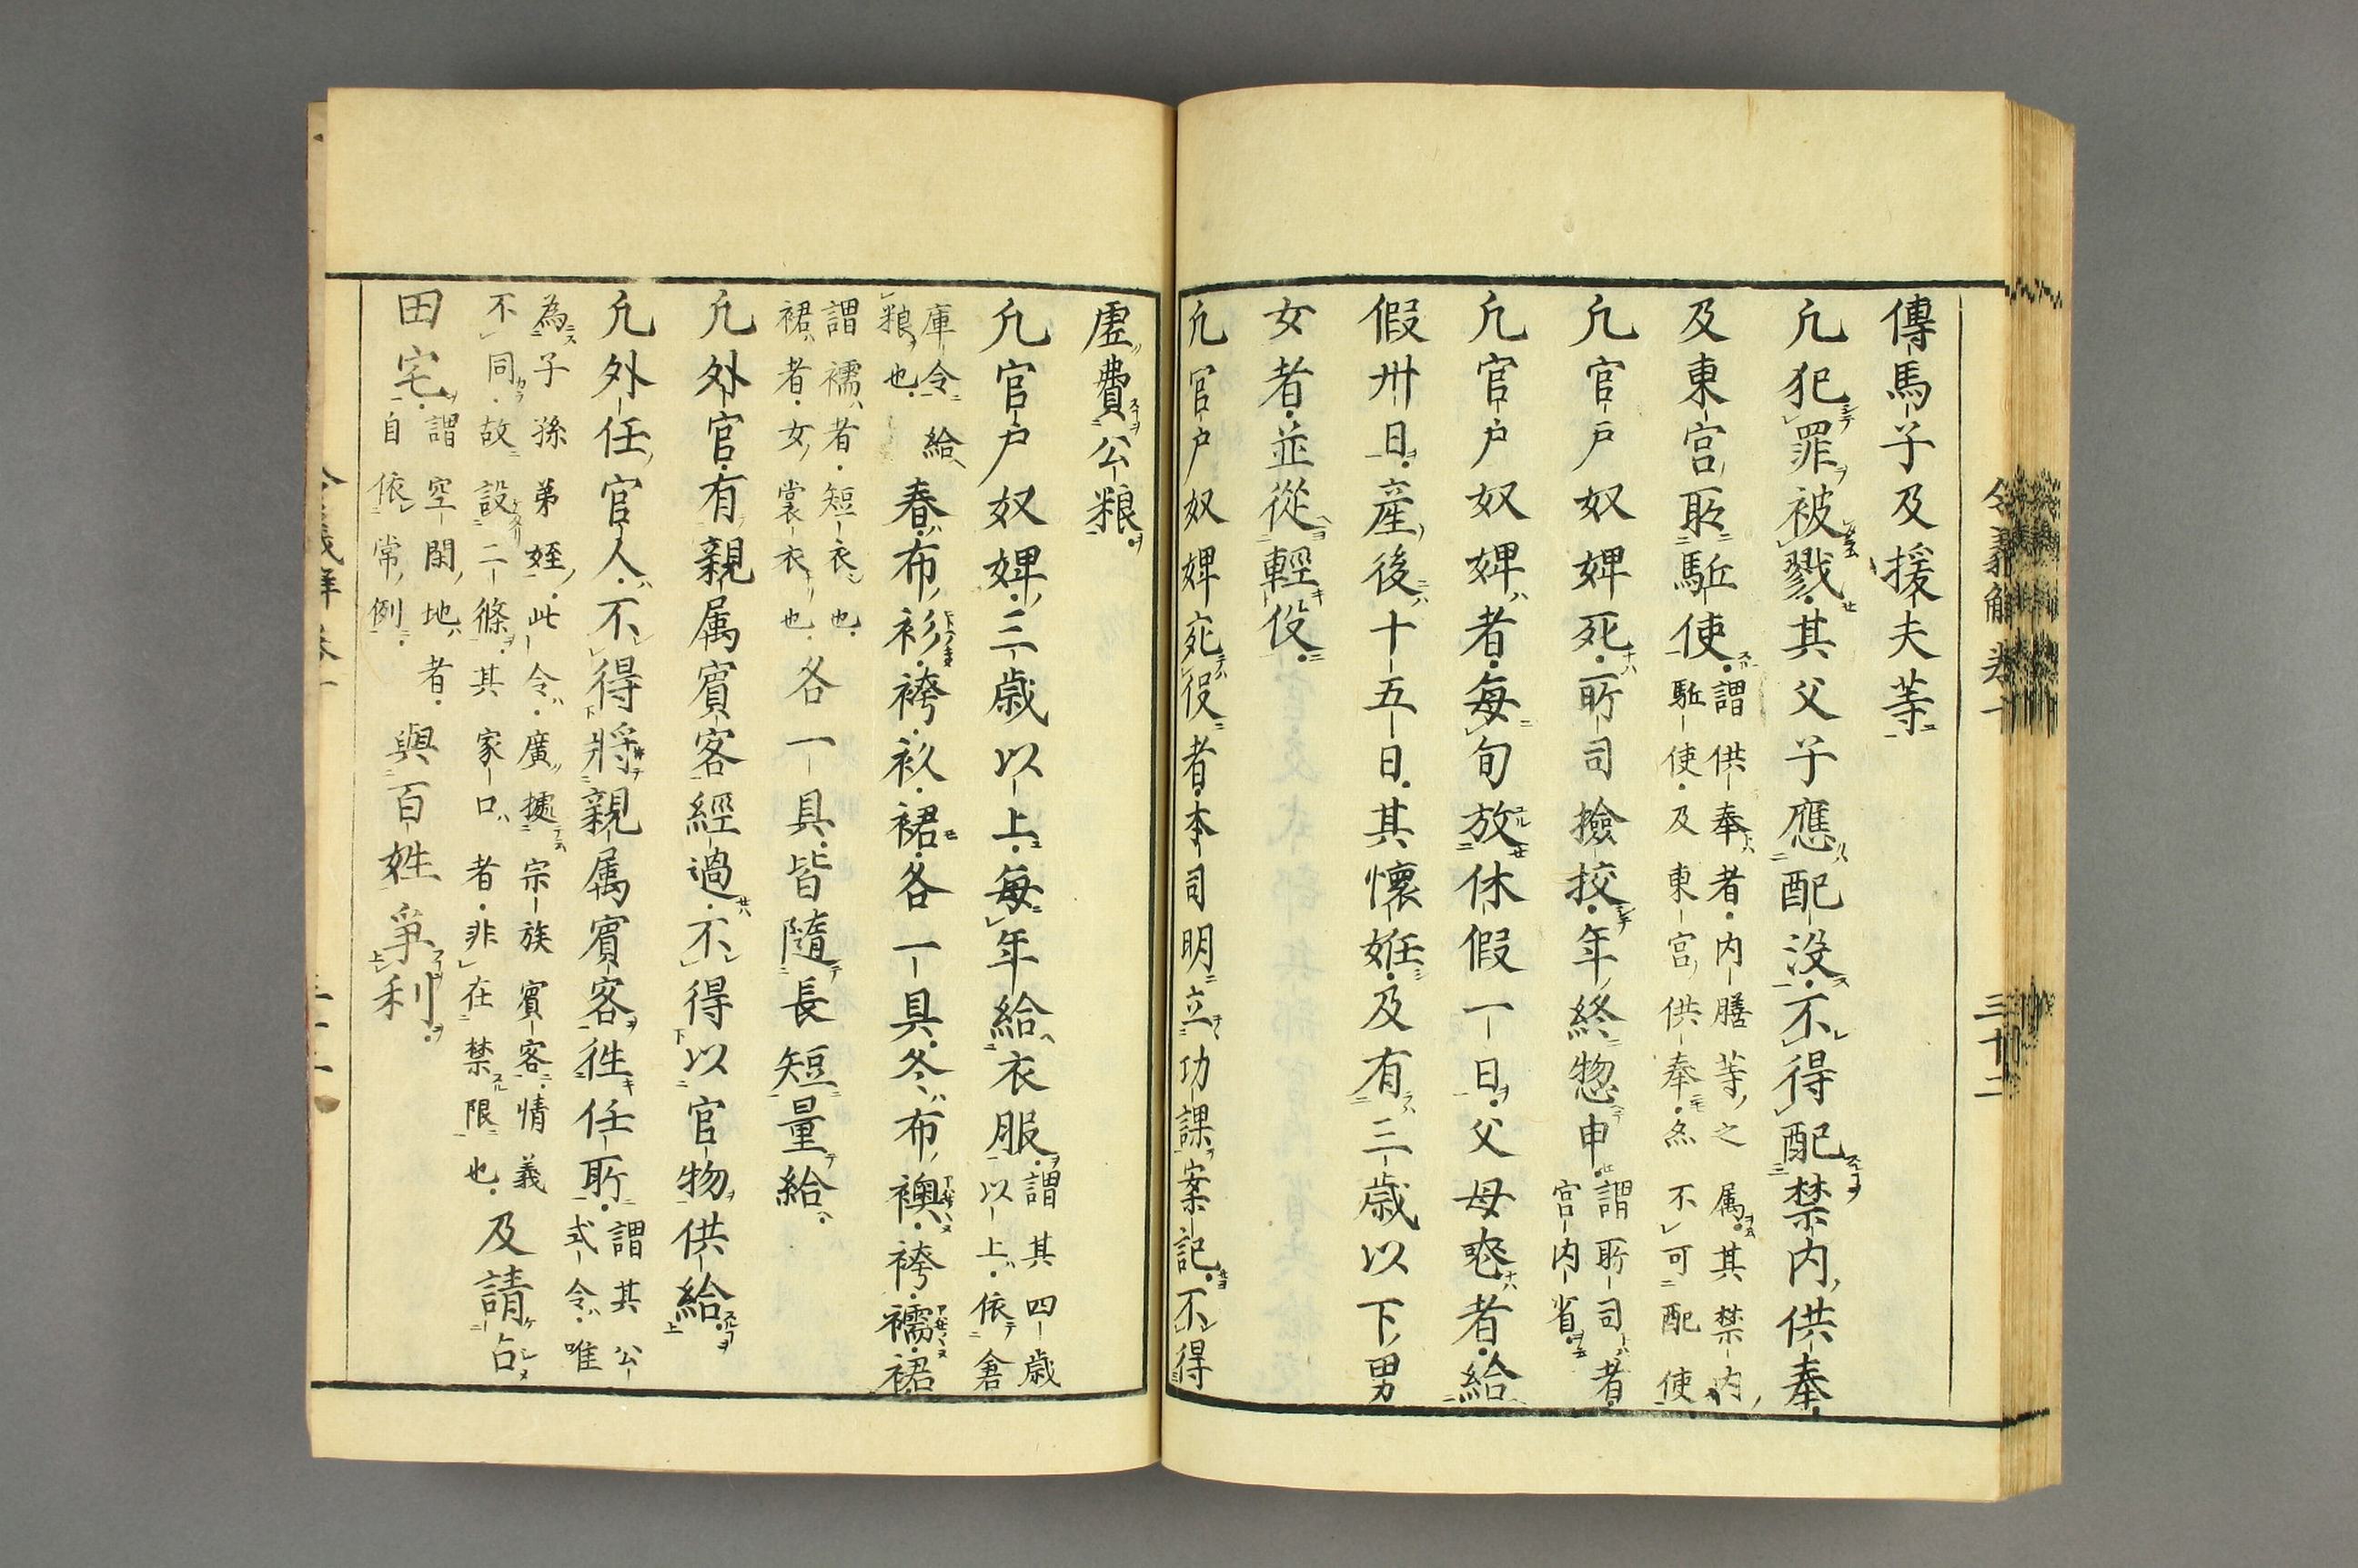 令義解巻一 三十二
傳馬子及援夫等
凢犯罪被戮其父子應配没不得配禁内供奉
及東宮所駈使
謂供奉者内膳等之属其禁内
駈使及東宮供奉亦不可配使
凢官戸奴婢死所司撿挍年終惣申
謂所司者
宮内省
凢官戸奴婢者毎旬放休假一日父母喪者給
假卅日産後十五日其懷妊及有三歳以下男
女者並從輕役
凢官戸奴婢宛役者本司明立功課案記不得
虚費公粮
凢官戸奴婢三歳以上毎年給衣服
謂其四歳
以上依倉
庫令給
粮也
春布衫袴衫裙各一具冬布襖袴襦裙
謂襦者短衣也
裙者女裳衣也
各一具皆隨長短量給
凢外官有親属賓客經過不得以官物供給
凢外任官人不得將親属賓客徃任所
謂其公
式令唯
為子孫弟姪此令廣據宗族賓客情義
不同故設二條其家口者非在禁限也
及請占
田宅
謂空閑地者
自依常例
與百姓爭利